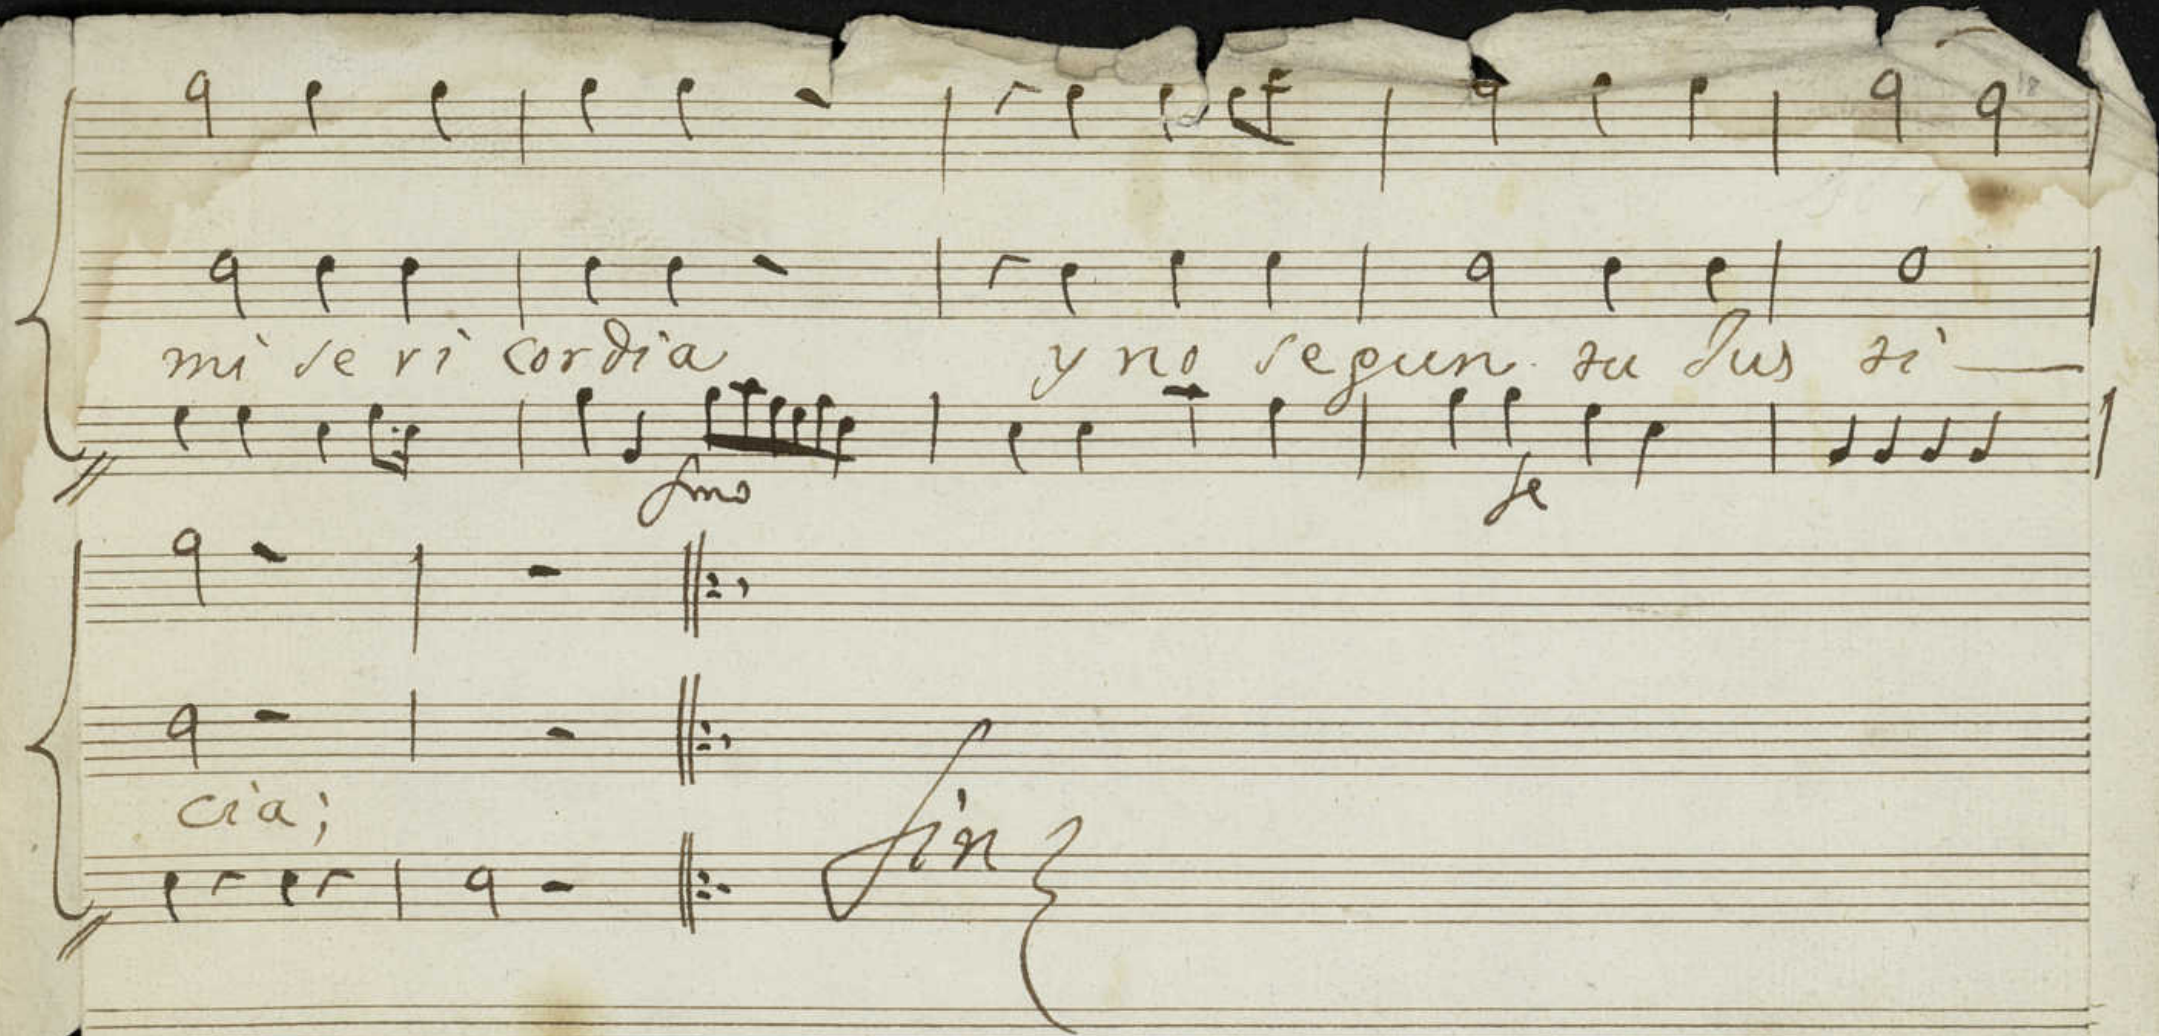 mi se ri cordia y no segun su Jus ti
fmo fe
cia;
fin